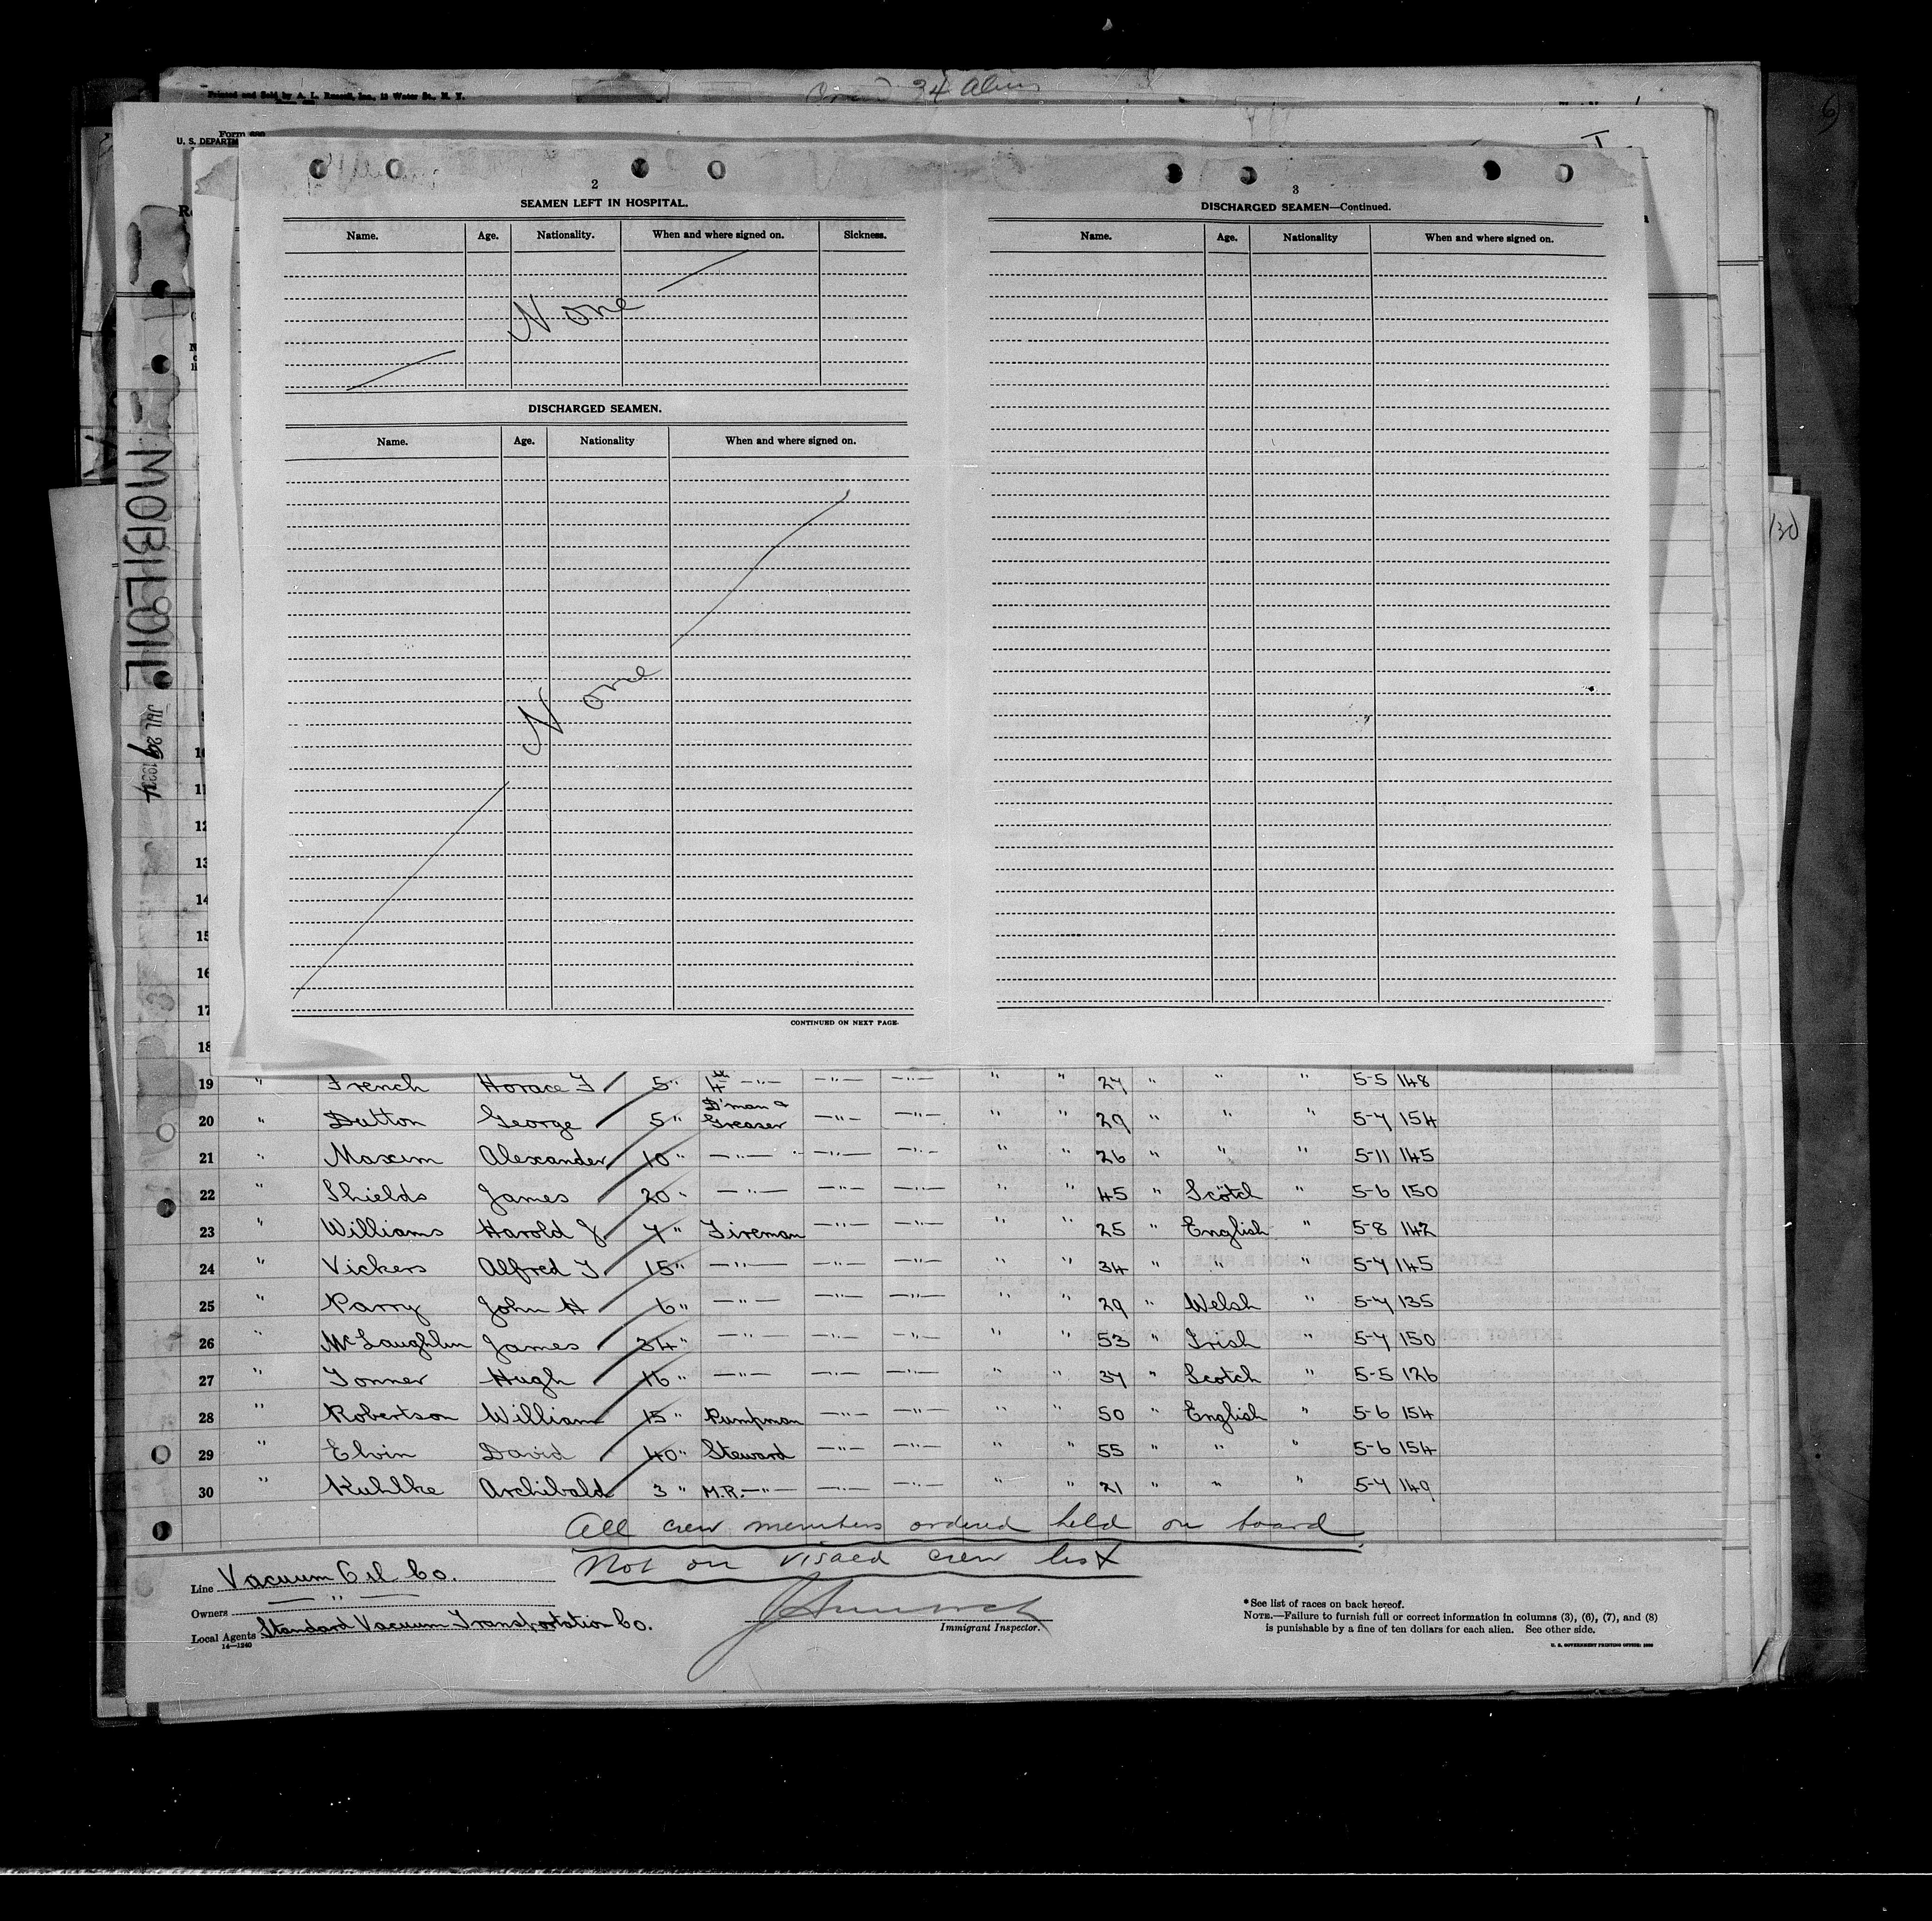 Printed and Sold by A. L. Russell, Inc., 15 Water St., N. Y.
34 Aliens
Form 680
U. S. DEPARTM
MOBILOIL
130
2
SEAMEN LEFT IN HOSPITAL.
Name. Age. Nationality. When and where signed on. Sickness.
None
DISCHARGED SEAMEN.
Name. Age. Nationality When and where signed on.
None
CONTINUED ON NEXT PAGE.
3
DISCHARGED SEAMEN—Continued.
Name. Age. Nationality When and where signed on.
10
11
12
13
14
15
16
17
18
19 " French Horace F 5" 4th —"— —"— —"— " " 27 " " " 5-5 148
20 " Dutton George 5" D'man & Greaser —"— —"— " " 29 " " " 5-7 154
21 " Maxim Alexander 10" —"— " —"— —"— " " 26 " " " 5-11 145
22 " Shields James 20" —"— —"— —"— " " 45 " Scotch " 5-6 150
23 " Williams Harold J 7" Fireman —"— —"— " " 25 " English " 5-8 142
24 " Vickers Alfred T 15" —"— —"— —"— " " 34 " " " 5-7 145
25 " Parry John H 6" —"— —"— —"— " " 29 " Welsh " 5-7 135
26 " McLaughlin James 34" —"— —"— —"— " " 53 " Irish " 5-7 150
27 " Tonner Hugh 16" —"— —"— —"— " " 37 " Scotch " 5-5 126
28 " Robertson William 15" Pumpman —"— —"— " " 50 " English " 5-6 154
29 " Elvin David 40" Steward —"— —"— " " 55 " " " 5-6 154
30 " Kuhlke Archibald 3" M.R.—"— —"— —"— " " 21 " " " 5-7 149
All crew members ordered held on board
Not on visaed crew list
Line Vacuum Oil Co.
Owners —"—
Local Agents Standard Vacuum Transportation Co.
14—1240
Immigrant Inspector.
* See list of races on back hereof.
NOTE.—Failure to furnish full or correct information in columns (3), (6), (7), and (8)
is punishable by a fine of ten dollars for each alien. See other side.
U. S. GOVERNMENT PRINTING OFFICE: